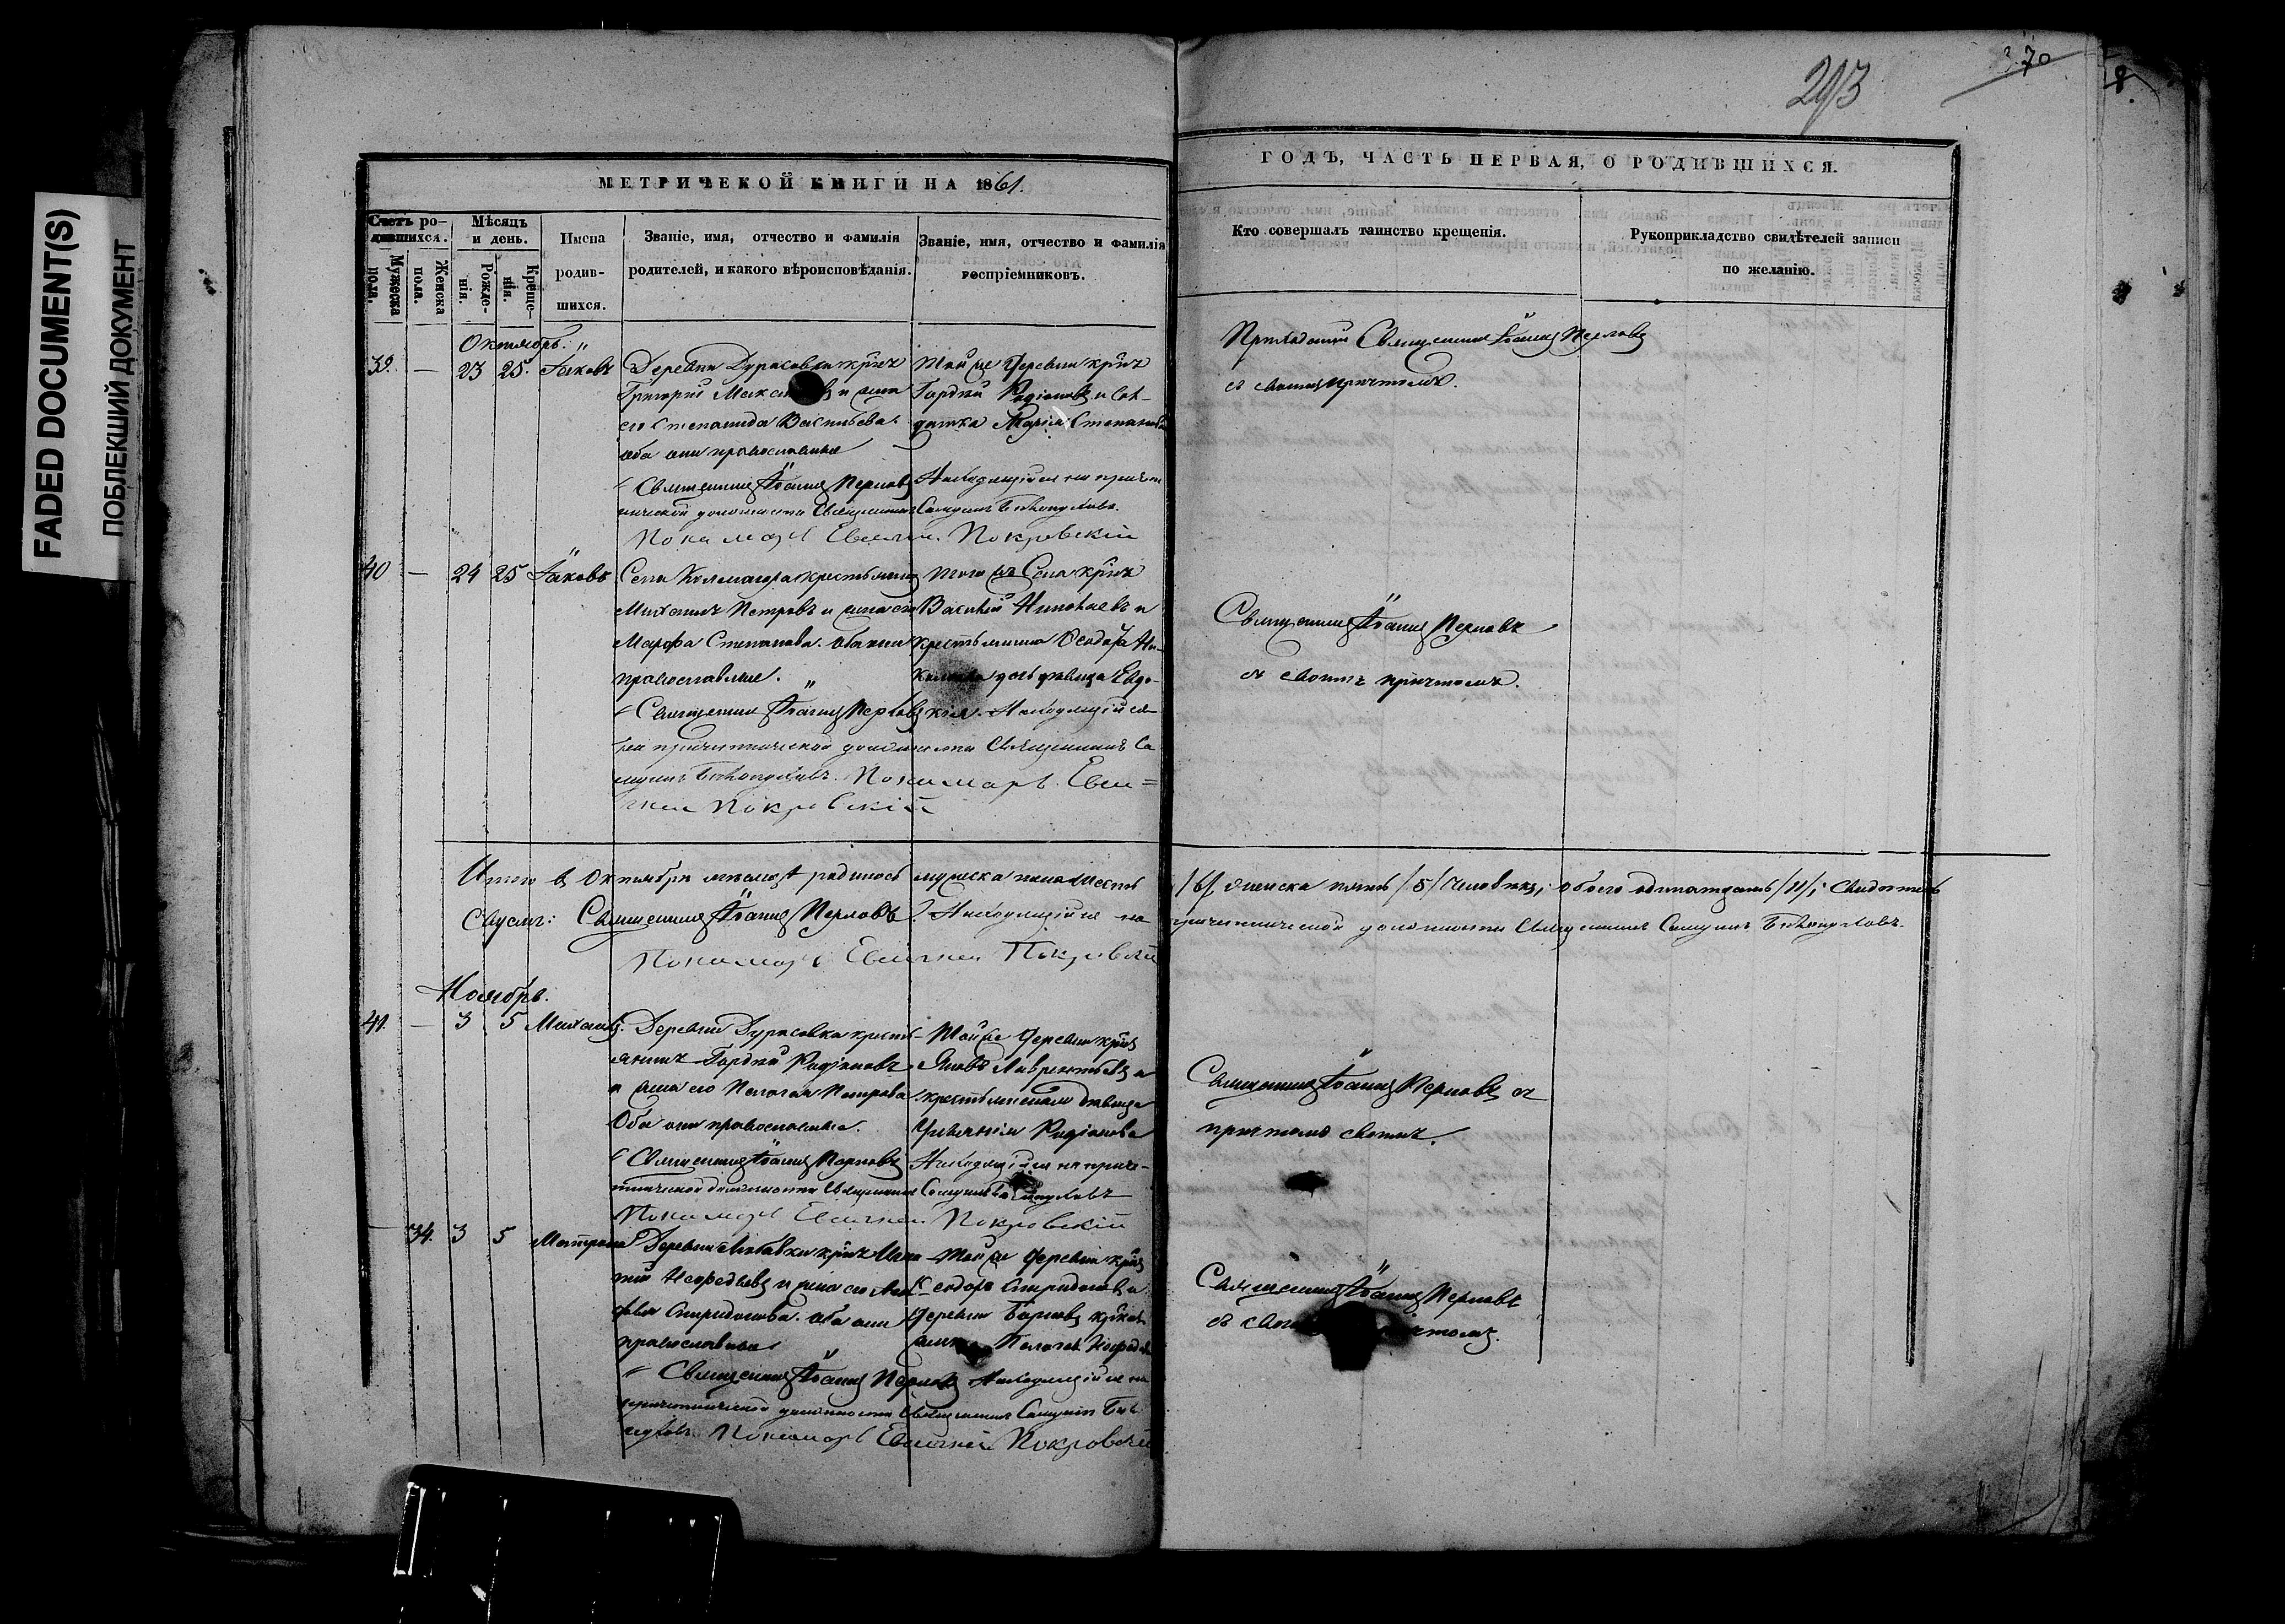 FADED DOCUMENT(S)
ПОБЛЕКШИЙ ДОКУМЕНТ
293
370
МЕТРИЧЕКОЙ КНИГИ НА 1861.
ГОДЪ, ЧАСТЬ ПЕРВАЯ, О РОДИВШИХСЯ.
Счетъ родившихся.
Мужеска пола.
Женска пола.
Мѣсяцъ и день.
Рожденія.
Крещенія.
Имена родившихся.
Званіе, имя, отчество и фамилія
родителей, и какого вѣроисповѣданія.
Званіе, имя, отчество и фамилія
воспріемниковъ.
Кто совершалъ таинство крещенія.
Рукоприкладство свидѣтелей записи
по желанію.
Октябрь.
39. — 23 25. Іаковъ
Деревни Дурасовки крѣнъ
Григорій и жена
его Степанида Васильева
оба они православные
Той же деревни крѣнъ
Гордѣй Родіоновъ и Сол-
датка Марія Степанова
Приходскій Священникъ Іоаннъ Перловъ
съ своимъ причтомъ.
Священникъ Іоаннъ Перловъ Находящійся на причет
нической должности Священникъ Самуилъ
Пономарь Евгеній Покровскій
40 — 24 25 Іаковъ
Села крестьянинъ
Михаилъ Петровъ и жена его
Марфа Степанова. оба они
православные.
того же Села крѣнъ
Василій Николаевъ и
крестьянина Ѳеодора Ни-
дочь дѣвица Евдо-
кія.
Священникъ Іоаннъ Перловъ
съ своимъ причтомъ.
Священникъ Іоаннъ Перловъ Находящійся
на причетнической должности Священникъ Са
муилъ Пономарь Евге=
ній Покровскій
Итого въ Октябрѣ мѣсяцѣ родилось мужеска пола шесть /6/, женска пять /5/ человѣкъ; обоего одинатцать /11/;
Священникъ Іоаннъ Перловъ. Находящійся на причетнической должности Священникъ Самуилъ
Пономарь Евгеній Покровскій
Ноябрь.
41. — 3 5 Михаилъ.
Деревни Дурасовки кресть-
янинъ Гордѣй Родіоновъ
и жена его Пелагея Петрова
Оба они православные.
Той же деревни крѣнъ
Яковъ Лаврентьевъ и
крестьянская дѣвица
Родіонова
Священникъ Іоаннъ Перловъ съ
причтомъ своимъ.
Священникъ Іоаннъ Перловъ Находящійся на приче-
тнической должности Священникъ Самуилъ
Пономарь Евгеній Покровскій
— 34. 3 5 Матрона
Деревни крѣнъ
и жена его
Спиридонова. оба они
православные
Той же деревни крѣнъ
Ѳеодоръ Спиридоновъ и
деревни
жена Пелагея
Священникъ Іоаннъ Перловъ
съ
Священникъ Іоаннъ Перловъ Находящійся на
причетнической должности Священникъ Самуилъ
Пономарь Евгеній Покровскій